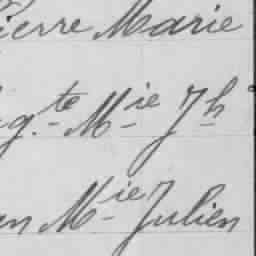 Pierre Marie
gte Mie Jh
an Mie Julien